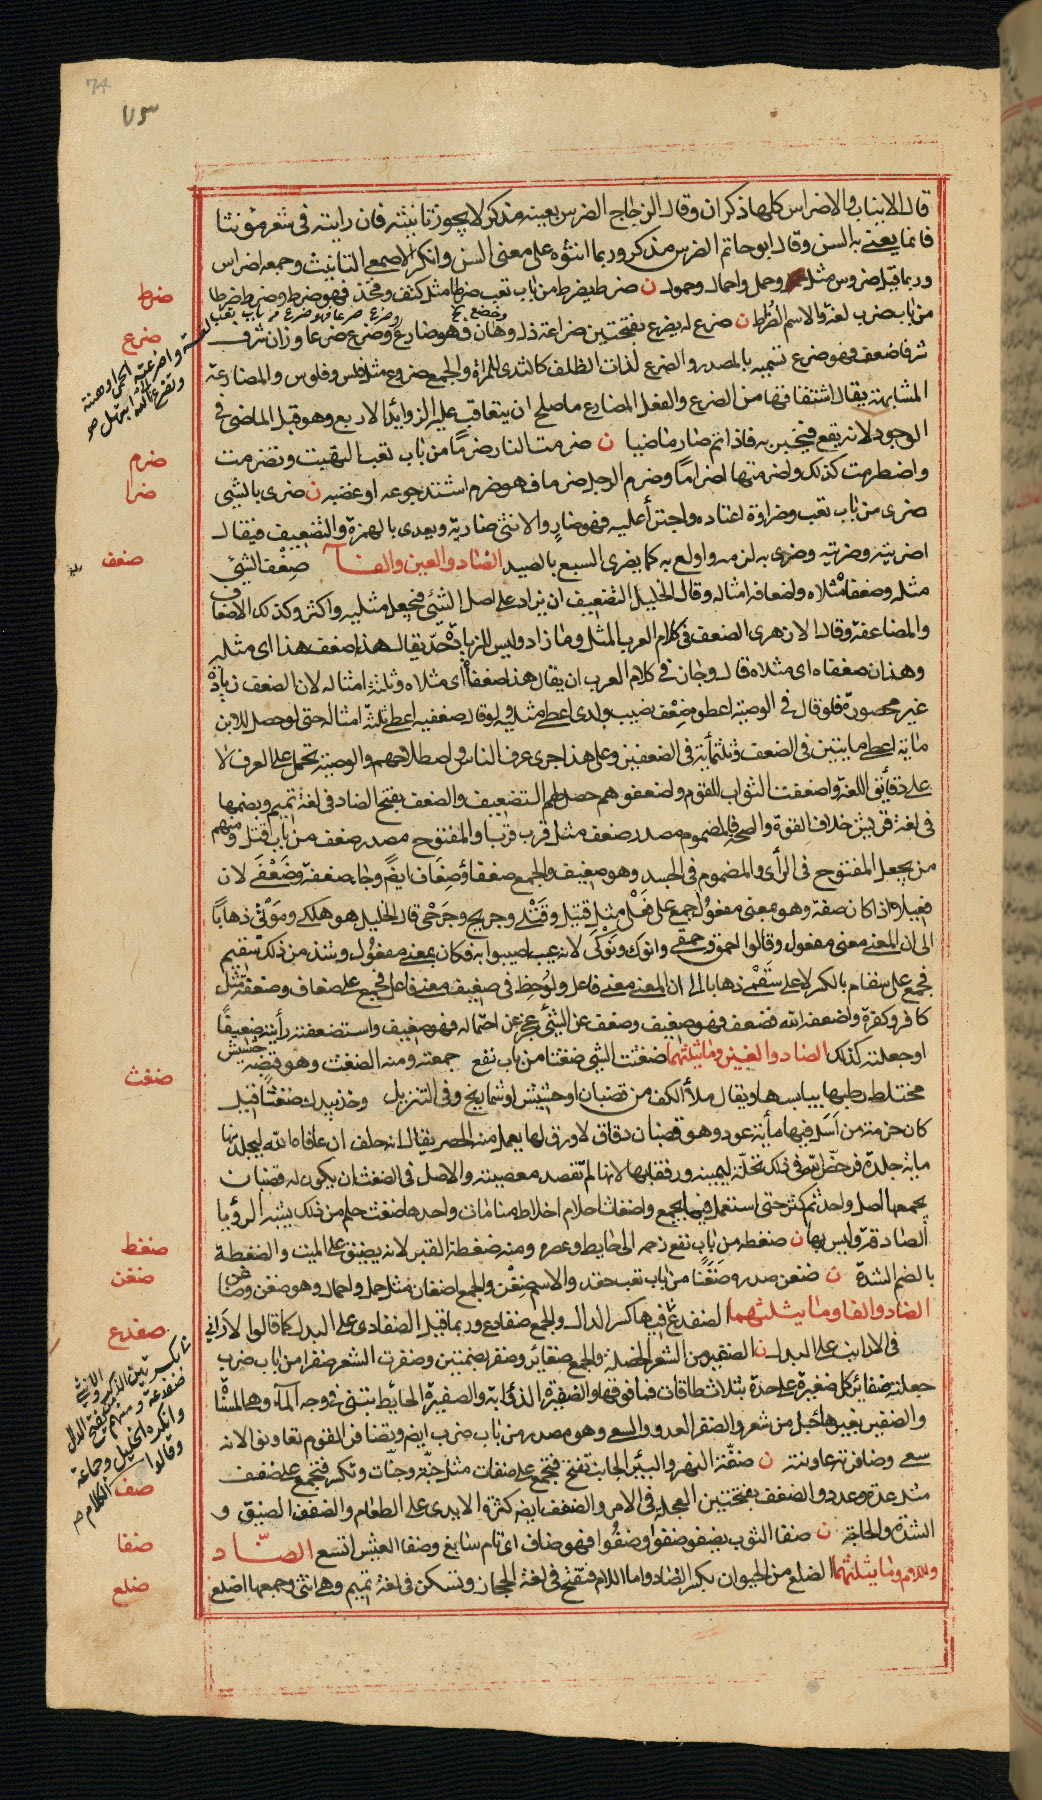 74
٧٣
قال الانياب والاضراس كلها ذكران وقال الزجاج الضرس بعينه مذكر لا يجوز تانيثه فان رايته في شعر مؤنثا
فانما يعني به السن وقال ابو حاتم الضرس مذكر وربما انثوه على معنى السن وانكر الاصمعي التانيث وجمعه اضراس
وربما قيل ضروس مثل حمل واحمال وحمول ن ضرط يضرط من باب تعب ضرطا مثل كتف وفخذ فهو ضرط وضرط ضرطا
ضرط
من باب ضرب لغة والاسم الضراط ن ضرع له يضرع بفتحتين ضراعة ذل وهان فهو ضارع وضرع ضرعا وزان شرف
ضرع
شرفا ضعف فهو ضرع تسمية بالمصدر والضرع لذات الظلف كالثدى للمراة والجمع ضروع مثل فلس وفلوس والمضارعة
المشابهة يقال اشتقاقها من الضرع والفعل المضارع ما صلح ان يتعاقب عليه الزوائد الاربع وهو قبل الماضي في
الوجود لانه يقع فيخبر به فاذا تم صار ماضيا ن ضرمت النار ضرما من باب تعب التهبت وتضرمت
ضرم
واضطرمت كذلك واضرمتها اضراما وضرم الرجل ضرما فهو ضرم اشتد جوعه او غضبه ن ضرى بالشيى
ضرا
ضرى من باب تعب وضراوة اعتاده واجترأ عليه فهو ضار والانثى ضارية ويعدى بالهمزة والتضعيف فيقال
اضريته وضريته وضرى به لزمه واولع به كما يضرى السبع بالصيد الضاد والعين والفاء ضعف الشيئ
ضعف
مثله وضعفاه مثلاه واضعافه امثاله وقال الخليل التضعيف ان يزاد على اصل الشيئ فيجعل مثليه واكثر وكذلك الاضعاف
والمضاعفة وقال الازهرى الضعف في كلام العرب المثل وما زاد وليس للزيادة حد يقال هذا ضعف هذا اى مثله
وهذان ضعفاه اى مثلاه قال وجاز في كلام العرب ان يقال هذا ضعفاه اى مثلاه وثلثة امثاله لان الضعف زيادة
غير محصورة فلو قال في الوصية اعطوه ضعف نصيب ولدى اعطى مثليه ولو قال ضعفيه اعطى ثلثة امثاله حتى لو حصل للابن
ماية اعطى مايتين في الضعف وثلثمأية في الضعفين وعلى هذا جرى عرف الناس واصطلاحهم والوصية تحمل على العرف لا
على دقأيق اللغة واضعفت الثواب للقوم واضعفوهم حصل لهم التضعيف والضعف بفتح الضاد في لغة تميم وبضمها
في لغة قريش خلاف القوة والصحة فالمضموم مصدر ضعف مثل قرب قربا والمفتوح مصدر ضعف من باب قتل ومنهم
من يجعل المفتوح في الرأى والمضموم في الجسد وهو ضعيف والجمع ضعفاء وضعاف ايضا وجاء ضعفة وضعفى لان
فعيلا اذا كان صفة وهو بمعنى مفعول جمع على فعلى مثل قتيل وقتلى وجريح وجرحى قال الخليل هو هلكى وموتى ذهابا
الى ان المعنى معنى مفعول وقالوا احمق وحمقى وانوك ونوكى لانه عيب اصيبوا به فكان بمعنى مفعول وشذ من ذلك سقيم
فجمع على سقام بالكسر لا على سقمى ذهابا الى ان المعنى معنى فاعل ولوحظ في ضعيف معنى فاعل فجمع على ضعاف وضعفة مثل
كافر وكفرة واضعفه الله فضعف فهو ضعيف وضعف عن الشيئ عجز عن احتماله فهو ضعيف واستضعفته رأيته ضعيفا
او جعلته كذلك الضاد والغين وما يثلثهما ضغثت الشيى ضغثا من باب نفع جمعته ومنه الضغث وهو قبضة حشيش
ضغث
مختلط رطبها بيابسها ويقال ملأ الكف من قضبان او حشيش او شماريخ وفي التنزيل وخذ بيدك ضغثا قيل
كان حزمة من اسل فيها مأية عود وهو قضبان دقاق لا ورق لها يعمل منه الحصر يقال انه حلف ان عافاه الله ليجلدنها
ماية جلدة فرخص له في ذلك تحلة ليمينه ورفقا بها لانها لم تقصد معصيته والاصل في الضغث ان يكون له قضبان
يجمعها اصل واحد ثم كثر حتى استعمل فيما يجمع واضغاث احلام اخلاط منامات واحدها ضغث حلم من ذلك يشبه الرؤيا
الصادقة وليس بها ن ضغطه من باب نفع زحمه الى حايط وعصره ومنه ضغطة القبر لانه يضيق على الميت والضغطة
ضغط
بالضم الشدة ن ضغن صدره ضغنا من باب تعب حقد والاسم ضغن والجمع اضغان مثل حمل واحمال وهو ضغن وضاغن
ضغن
الضاد والفا وما يثلثهما الضفدع فيها كسر الدال والجمع ضفادع وربما قيل الضفادى على البدل كما قالوا الاراني
ضفدع
في الارانب على البدل ن الضفيرة من الشعر الخصلة والجمع ضفاير وضفر بضمتين وضفرت الشعر ضفرا من باب ضرب
جعلته ضفاير كل ضفيرة على حدة بثلاث طاقات فما فوقها والضفيرة الذؤابة والضفيرة الحايط يبنى في وجه الماء وهى المسناة
والضفير بغير ها حبل من شعر والضفر العدو والسعى وهو مصدر من باب ضرب ايضا وتضافر القوم تعاونوا لانه
سعى وضافرته عاونته ن ضفة النهر والبئر الجانب تفتح فتجمع على ضفات مثل جنة وجنات وتكسر فتجمع على ضفف
ضف
مثل عدة وعدد والضفف بفتحتين العجلة في الامر والضفف ايضا كثرة الايدى على الطعام والضفف الضيق و
الشدة والحاجة ن ضفا الثوب يضفو ضفوا وضفوا فهو ضاف اى تام سابغ وضفا العيش اتسع الضاد
ضفا
واللام وما يثلثهما الضلع من الحيوان بكسر الضاد واما اللام فتفتح في لغة الحجاز وتسكن في لغة تميم وهى انثى وجمعها اضلع
ضلع